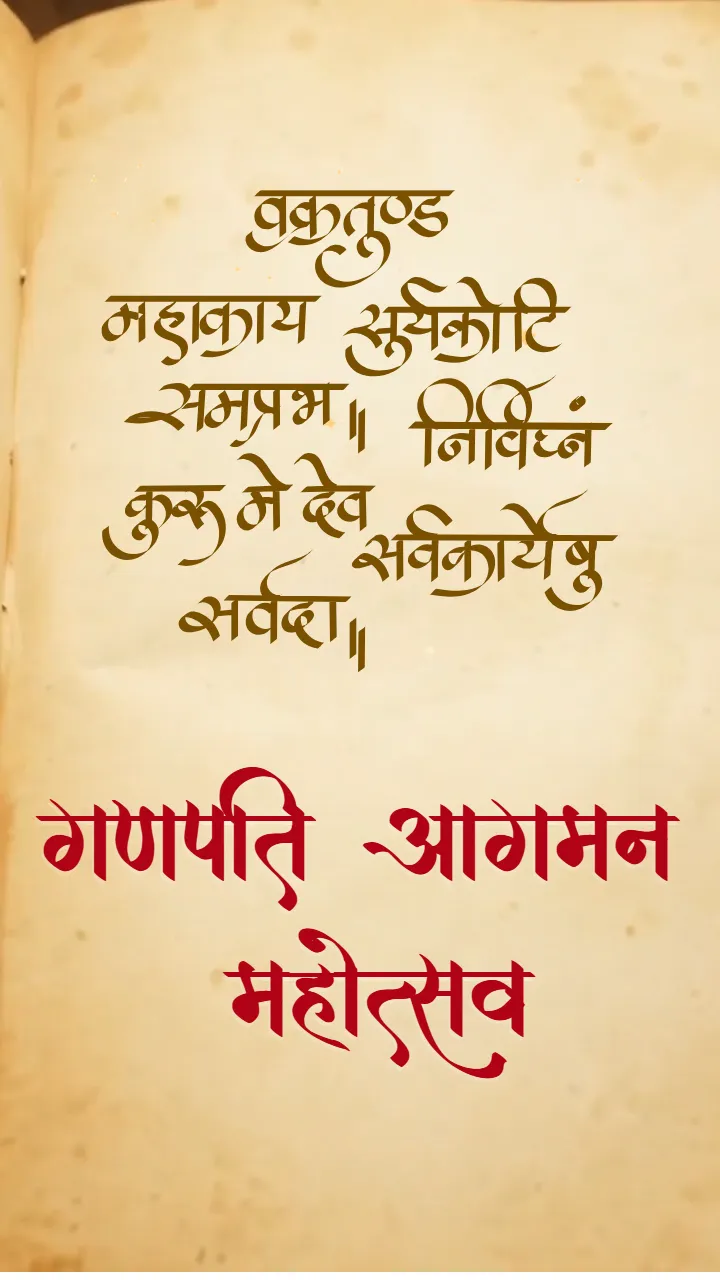 वक्रतुण्ड
महाकाय सुर्यकोटि
समप्रभ॥ निर्विघ्नं
कुरू मे देव सर्वकार्येषु
सर्वदा॥
गणपति आगमन
महोत्सव